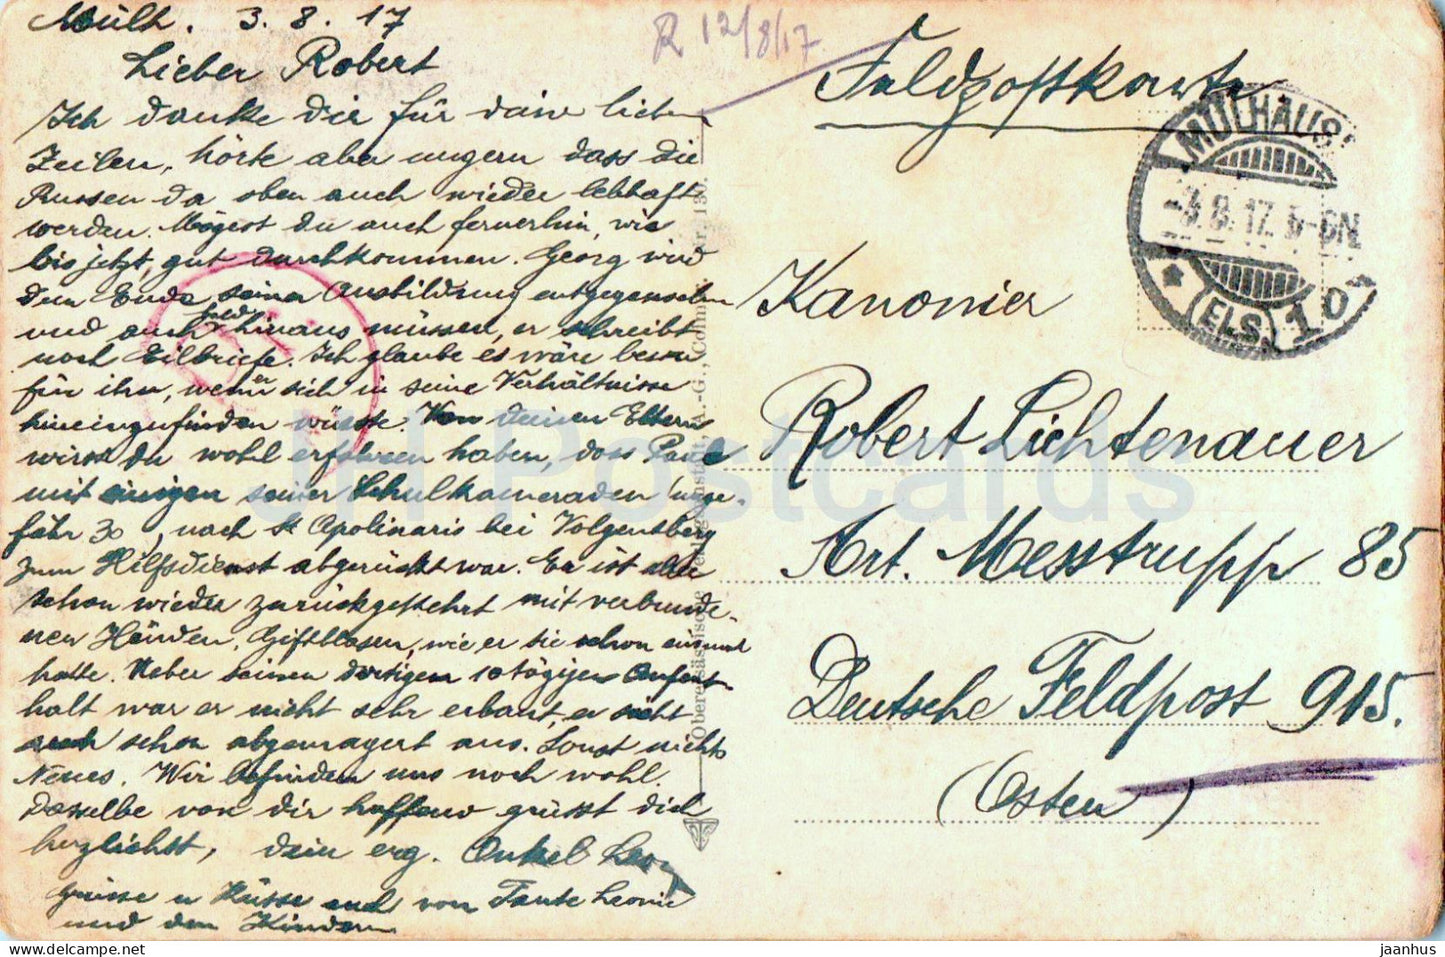 Mülh. 3.8.17
Lieber Robert
Ich danke dir für deine lieben
Zeilen, hörte aber ungern dass die
Russen da oben auch wieder lebhaft
werden. Mögest du auch fernerhin, wie
bis jetzt, gut durchkommen. Georg wird
dem Ende seiner Ausbildung entgegensehen
und auch bald hinaus müssen, er schreibt
noch Eilbriefe. Ich glaube es wäre besser
für ihn, wenn er sich in seine Verhältnisse
hineinzufinden wüsste. Von deinen Eltern
wirst du wohl erfahren haben, dass Paul
mit einigen seiner Schulkameraden (unge-
fähr 30), nach St Apolinaris bei Volgensberg
zum Hilfsdienst abgerückt war. Er ist aber
schon wieder zurückgekehrt mit verbunde-
nen Händen, Giftblasen, wie er sie schon einmal
hatte. Ueber seinen dortigen 10tägigen Aufent-
halt war er nicht sehr erbaut, er sieht
auch schon abgemagert aus. Sonst nichts
Neues. Wir befinden uns noch wohl.
Dasselbe von dir hoffend grüsst dich
herzlichst, dein erg. Onkel Leo
Grüsse u Küsse auch von Tante Leonie
und den Kindern
R 12/8/17
Feldpostkarte
MÜLHAUS
3.8.17. 5-6N
(ELS.) 1
Kanonier
Robert Lichtenauer
Art. Messtrupp 85
Deutsche Feldpost 915.
(Osten)
JH Postcards
jaanhus
www.delcampe.net